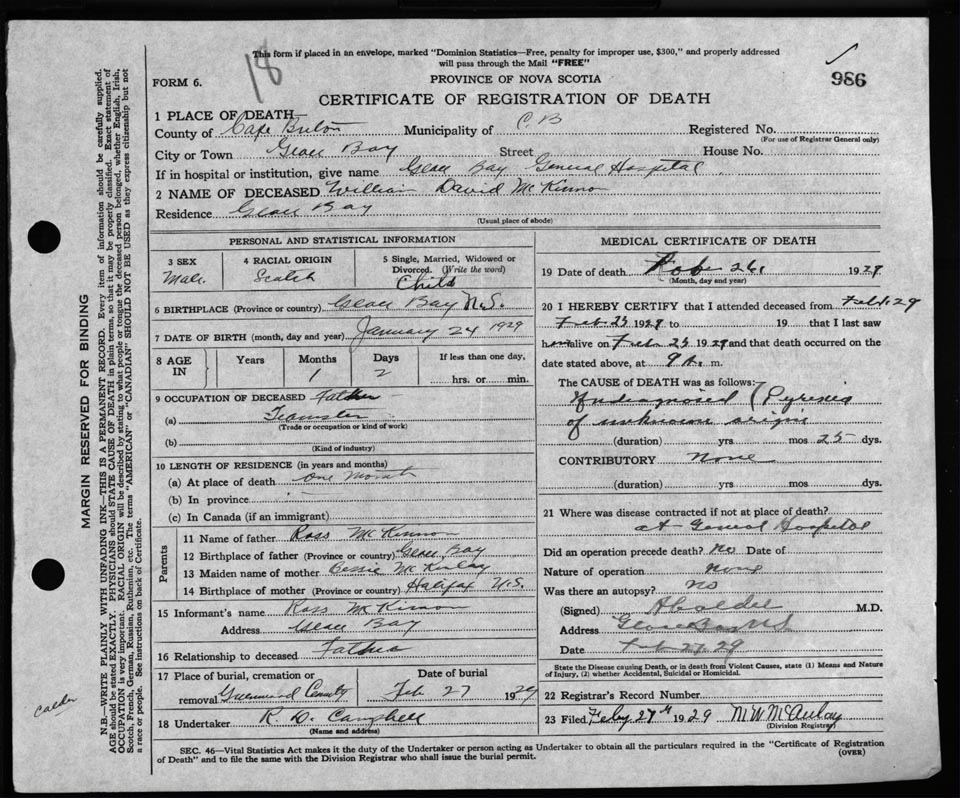 This form if placed in an envelope, marked "Dominion Statistics—Free, penalty for improper use, $300," and properly addressed
will pass through the Mail "FREE"
18
986
FORM 6.
PROVINCE OF NOVA SCOTIA
CERTIFICATE OF REGISTRATION OF DEATH
1 PLACE OF DEATH
County of Cape Breton Municipality of C. B Registered No.
(For use of Registrar General only)
City or Town Glace Bay Street House No.
If in hospital or institution, give name Glace Bay General Hospital
2 NAME OF DECEASED William David McKinnon
Residence Glace Bay
(Usual place of abode)
PERSONAL AND STATISTICAL INFORMATION
3 SEX 4 RACIAL ORIGIN 5 Single, Married, Widowed or
Divorced. (Write the word)
Male Scotch Child
6 BIRTHPLACE (Province or country) Glace Bay N.S.
7 DATE OF BIRTH (month, day and year) January 24 1929
8 AGE IN Years Months Days If less than one day,
1 2 hrs. or min.
9 OCCUPATION OF DECEASED Father
(a) Teamster
(Trade or occupation or kind of work)
(b)
(Kind of industry)
10 LENGTH OF RESIDENCE (in years and months)
(a) At place of death one month
(b) In province
(c) In Canada (if an immigrant)
Parents
11 Name of father Ross McKinnon
12 Birthplace of father (Province or country) Glace Bay
13 Maiden name of mother Bessie McKinlay
14 Birthplace of mother (Province or country) Halifax N.S.
15 Informant's name Ross McKinnon
Address Glace Bay
16 Relationship to deceased Father
17 Place of burial, cremation or Date of burial
removal Greenwood Cemetery Feb 27 1929
18 Undertaker R. D. Campbell
(Name and address)
MEDICAL CERTIFICATE OF DEATH
19 Date of death Feb 26, 1929
(Month, day and year)
20 I HEREBY CERTIFY that I attended deceased from Feb 1. 29
Feb 25 1929 to 19 that I last saw
h alive on Feb 25 1929 and that death occurred on the
date stated above, at 9 A. m.
The CAUSE of DEATH was as follows:
Undiagnosed (Pyrexia
of unknown origin
(duration) yrs. mos 25 dys.
CONTRIBUTORY None
(duration) yrs. mos. dys.
21 Where was disease contracted if not at place of death?
at General Hospital
Did an operation precede death? no Date of
Nature of operation none
Was there an autopsy? no
(Signed) M.D.
Address Glace Bay N.S.
Date Feb 27. 29
State the Disease causing Death, or in death from Violent Causes, state (1) Means and Nature
of Injury, (2) whether Accidental, Suicidal or Homicidal.
22 Registrar's Record Number
23 Filed Feby 27th 1929 M W McAulay
(Division Registrar)
SEC. 46—Vital Statistics Act makes it the duty of the Undertaker or person acting as Undertaker to obtain all the particulars required in the "Certificate of Registration
of Death" and to file the same with the Division Registrar who shall issue the burial permit.
(OVER)
MARGIN RESERVED FOR BINDING
N.B.—WRITE PLAINLY WITH UNFADING INK—THIS IS A PERMANENT RECORD. Every item of information should be carefully supplied.
AGE should be stated EXACTLY. PHYSICIANS should STATE CAUSE OF DEATH in plain terms, so that it may be properly classified. Exact statement of
OCCUPATION is very important. RACIAL ORIGIN will be described by stating to what people or tongue the deceased person belonged, whether English, Irish,
Scotch, French, German, Russian, Ruthenian, etc. The terms "AMERICAN" or "CANADIAN" SHOULD NOT BE USED as they express citizenship but not
a race or people. See instructions on back of Certificate.
calder